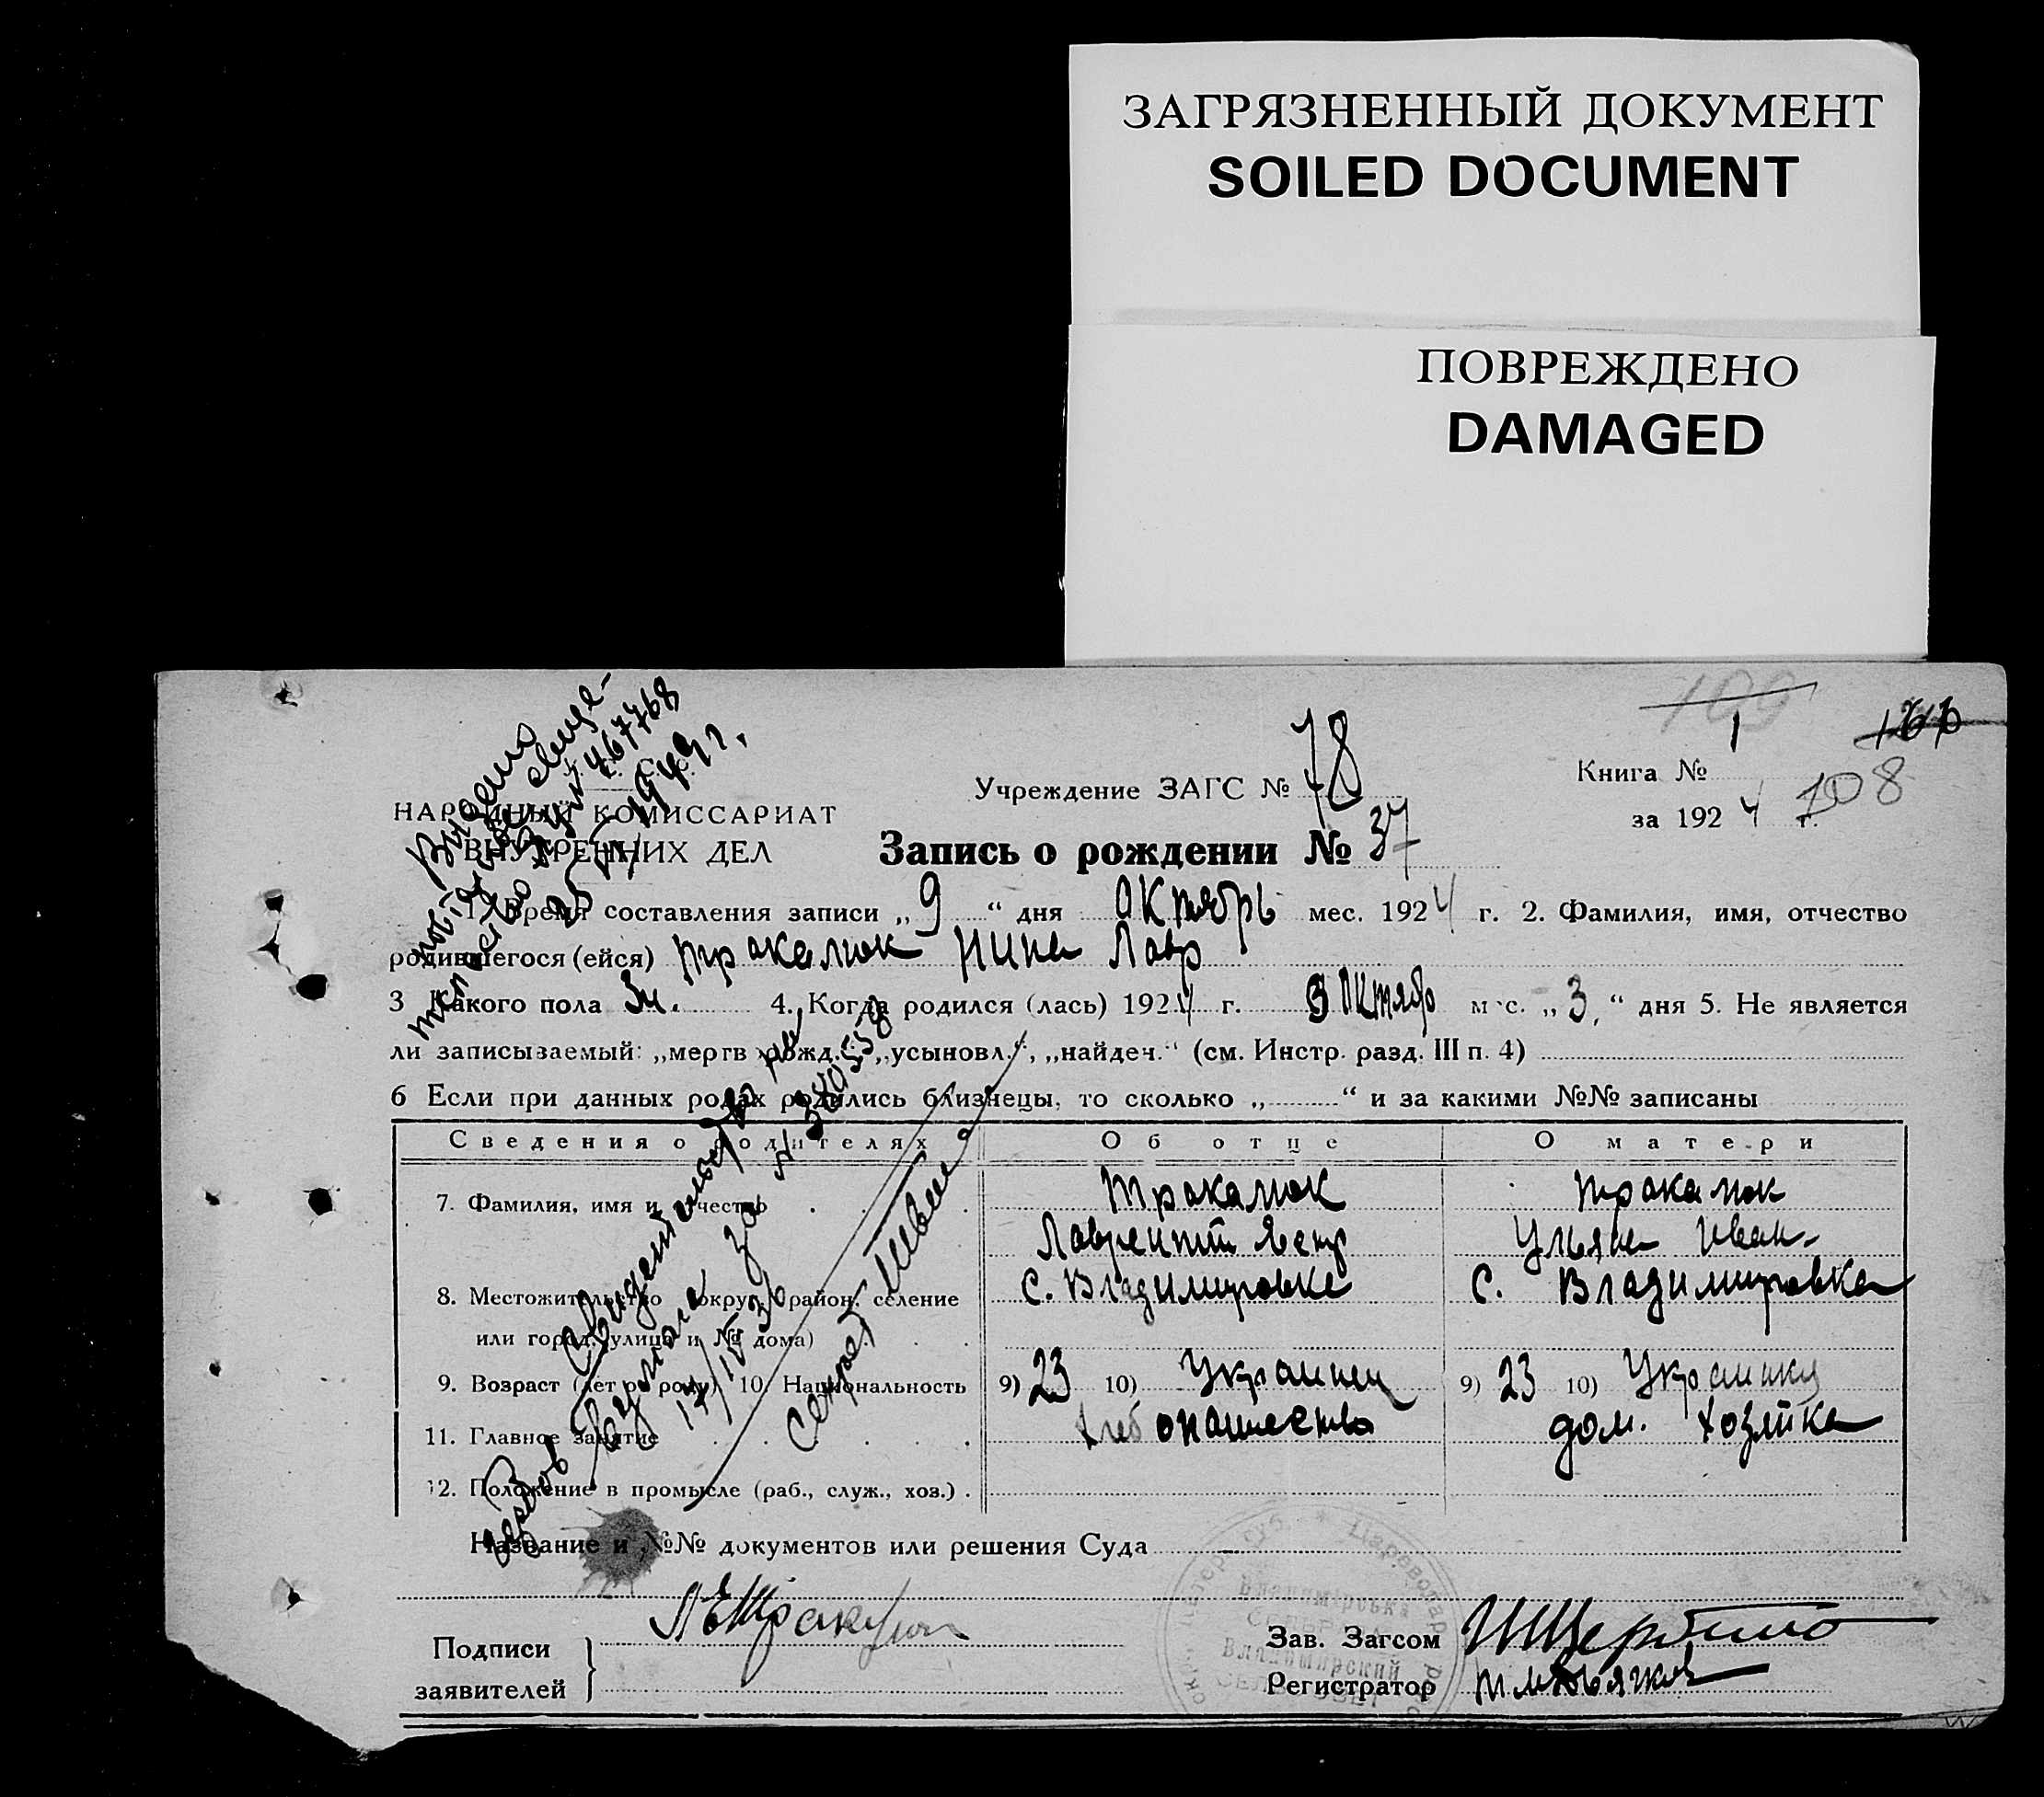 ЗАГРЯЗНЕННЫЙ ДОКУМЕНТ
SOILED DOCUMENT
ПОВРЕЖДЕНО
DAMAGED
109
1
108
Книга №
за 1924 г.
Учреждение ЗАГС № 78
НАРОДНЫЙ КОМИССАРИАТ
ВНУТРЕННИХ ДЕЛ
Запись о рождении № 37
1. Время составления записи „9“ дня Октябрь мес. 1924 г. 2. Фамилия, имя, отчество
родившегося (ейся) Тракалюк Нина Лавр
3 Какого пола Ж. 4. Когда родился (лась) 1924 г. Октябр м с. „3“ дня 5. Не является
ли записываемый: „мертв рожд.“, „усыновл.“, „найден.“ (см. Инстр. разд. III п. 4)
6 Если при данных родах родились близнецы, то сколько „ “ и за какими №№ записаны
Сведения о родителях Об отце О матери
7. Фамилия, имя и отчество Тракалюк Тракалюк
Лаврентий Ульяна Иван-
8. Местожительство (округ, район, селение с. Владимировка с. Владимировка
или город, улица и № дома)
9. Возраст (лет от роду) 10. Национальность 9) 23 10) Украинец 9) 23 10) Украинка
11. Главное занятие хлебопашество дом. хозяйка
12. Положение в промысле (раб., служ., хоз.)
Название и №№ документов или решения Суда
Подписи
заявителей
Зав. Загсом
Регистратор
Выдано
467768
1949 г.
Секрет